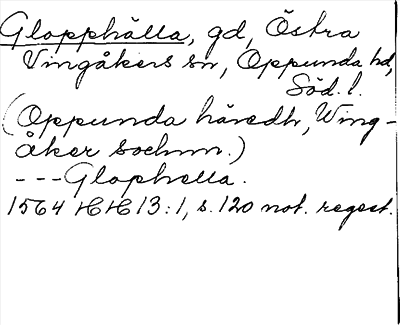 Glopphälla, gd, Östra
Vingåkers sn, Oppunda hd,
Söd. l.
(Oppunda häredh, Wing-
åker sochnn.)
---Glophella.
1564 HH 13:1, s. 120 not. regest.